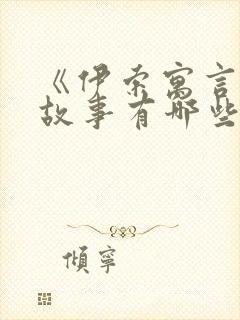 《伊索寓言
故事有哪些
倾宁